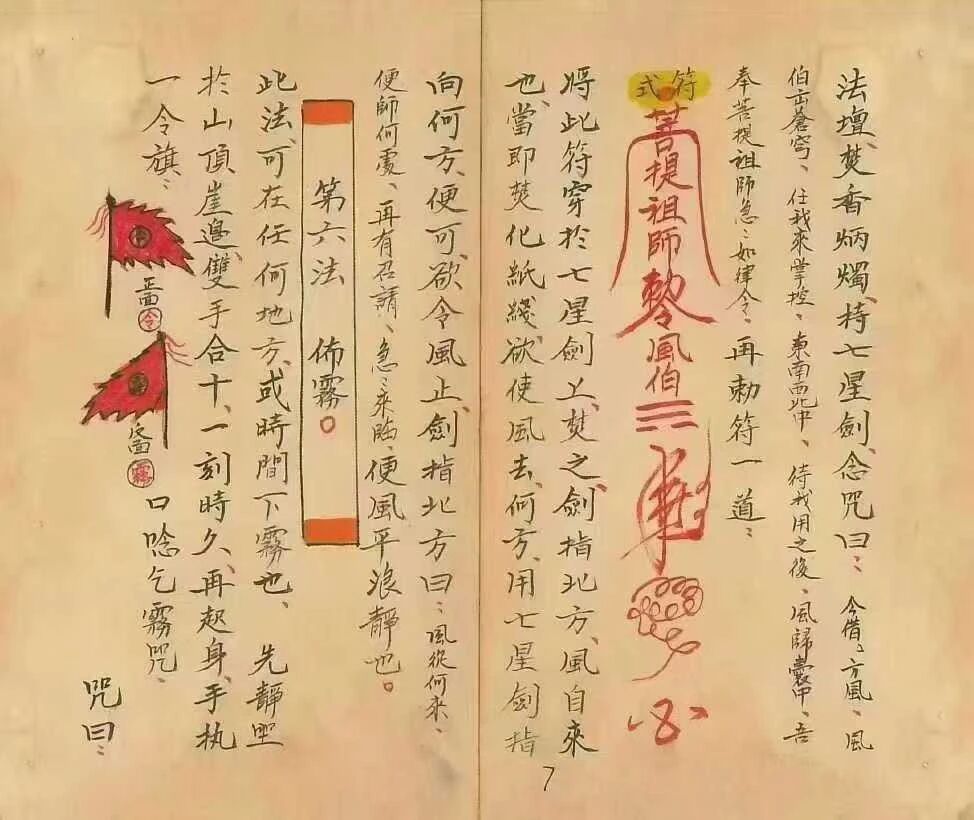 法壇、焚香炳燭、持七星劍、念咒曰：今借八方風、風
伯出蒼穹、任我來掌控、東南西北中、待我用之後、風歸囊中、吾
奉菩提祖師急：如律令、再勅符一道：
符式
菩提祖師勅令風伯
將此符穿於七星劍上、焚之、劍指北方、風自來
也、當即焚化紙錢、欲使風去何方、用七星劍指
7
向何方、便可、欲令風止、劍指北方曰：風從何來、
便歸何處、再有召請、急：來臨、便風平浪靜也。
第六法 佈霧。
此法、可在任何地方、或時間下霧也、先靜坐
於山頂崖邊、雙手合十、一刻時久、再起身、手执
一令旗：
正面 令
反面 霧
口唸乞霧咒、
咒曰：